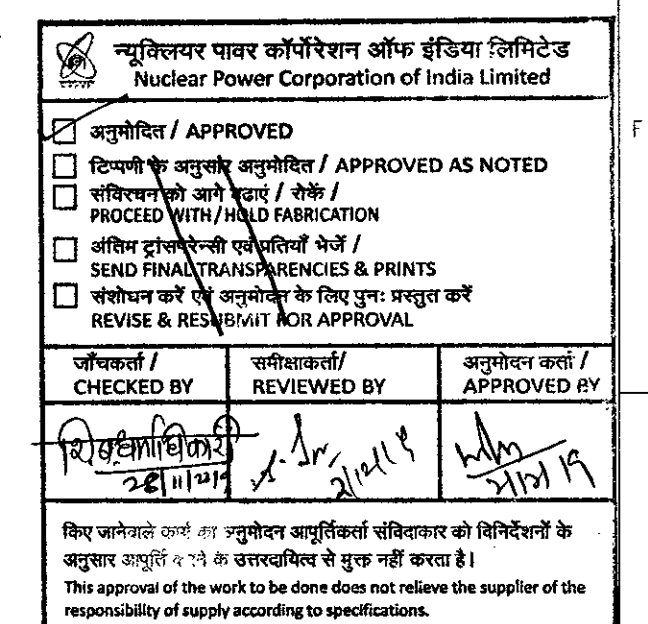 न्यूक्लियर पावर कॉर्पोरेशन ऑफ इंडिया लिमिटेड
Nuclear Power Corporation of India Limited
अनुमोदित / APPROVED
टिप्पणी के अनुसार अनुमोदित / APPROVED AS NOTED
संविरचन को आगे बढाएं / रोकें /
PROCEED WITH / HOLD FABRICATION
अंतिम ट्रांसपरेन्सी एवं प्रतियाँ भेजें /
SEND FINAL TRANSPARENCIES & PRINTS
संशोधन करें एवं अनुमोदन के लिए पुनः प्रस्तुत करें
REVISE & RESUBMIT FOR APPROVAL
जाँचकर्ता / समीक्षाकर्ता/ अनुमोदन कर्ता /
CHECKED BY REVIEWED BY APPROVED BY
किए जानेवाले कार्य का अनुमोदन आपूर्तिकर्ता संविदाकार को विनिर्देशनों के
अनुसार आपूर्ति करने के उत्तरदायित्व से मुक्त नहीं करता है।
This approval of the work to be done does not relieve the supplier of the
responsibility of supply according to specifications.
F